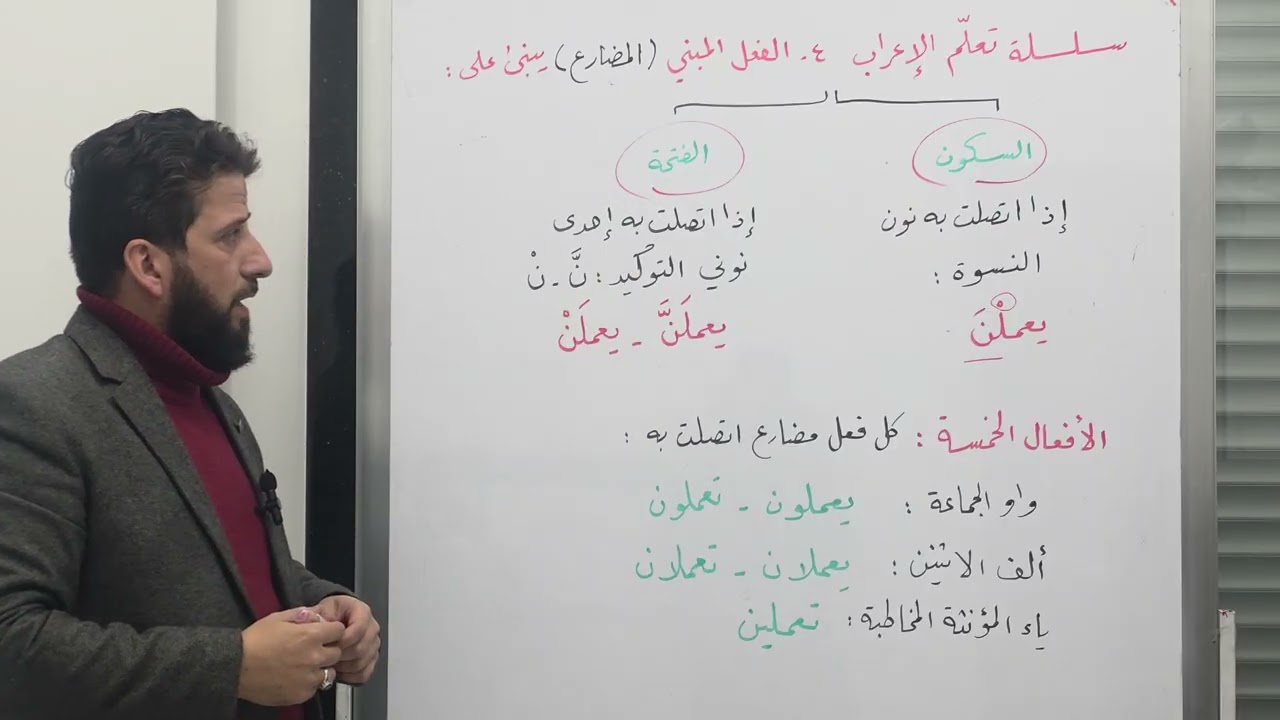 سلسلة تعلّم الإعراب ٤ـ الفعل المبني (المضارع) يبنى على :
السكون
إذا اتصلت به نون
النسوة :
يعملْنَ
الفتحة
إذا اتصلت به إحدى
نوني التوكيد : نَّ ـ نْ
يعملَنَّ ـ يعملَنْ
الأفعال الخمسة : كل فعل مضارع اتصلت به :
واو الجماعة : يعملون ـ تعملون
ألف الاثنين : يعملان ـ تعملان
ياء المؤنثة المخاطبة : تعملين